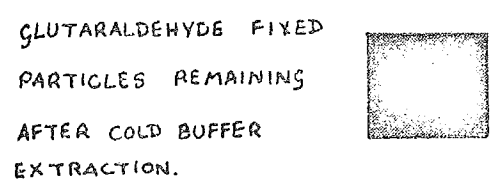 GLUTARALDEHYDE FIXED
PARTICLES REMAINING
AFTER COLD BUFFER
EXTRACTION.